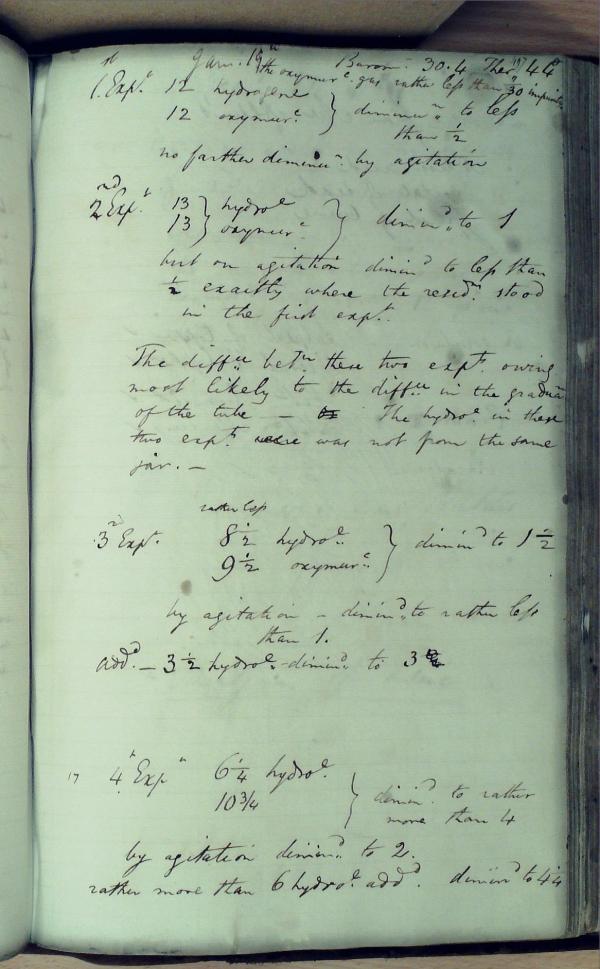 Jany. 19th Barom: 30.4 Ther. 44°
the oxymurc. gas rather less than 30 impure
1st. Expt. 12 hydrogene
12 oxymurc. } diminn. to less
than 1/2
no farther diminn. by agitation
2nd Expt. 13 } hydroe
13 } oxymurc. } dimind. to 1
but on agitation dimind to less than
1/2 exactly where the residm. stood
in the first expt.
The diffce betn. these two expts. owing
most likely to the diffce in the graduan
of the tube — The hydroe. in these
two expts were was not from the same
jar. —
rather less
3d Expt. 8 1/2 hydroe.
9 1/2 oxymurc. } dimind to 1 1/2
by agitation – dimind. to rather less
than 1.
addd. – 3 1/2 hydroe. – dimind. to 3
17 4th Expt 6 1/4 hydroe.
10 3/4 } dimind. to rather
more than 4
by agitation dimind. to 2.
rather more than 6 hydroe. addd. dimind to 4 1/4